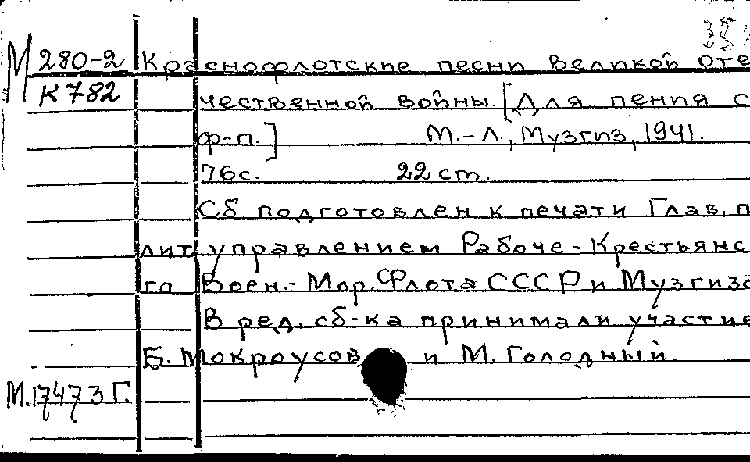 М 280-2 Краснофлотские песни Великой Оте
К 782 чественной войны. [Для пения с
ф-п.] М.-Л., Музгиз, 1941.
76с. 22 cm.
Сб подготовлен к печати Глав. п
лит управлением Рабоче-Крестьянс
го Воен.-Мор. Флота СССР и Музгиза
В ред. сб-ка принимали участие
Б. Мокроусов и М. Голодный.
М.17473 Г.